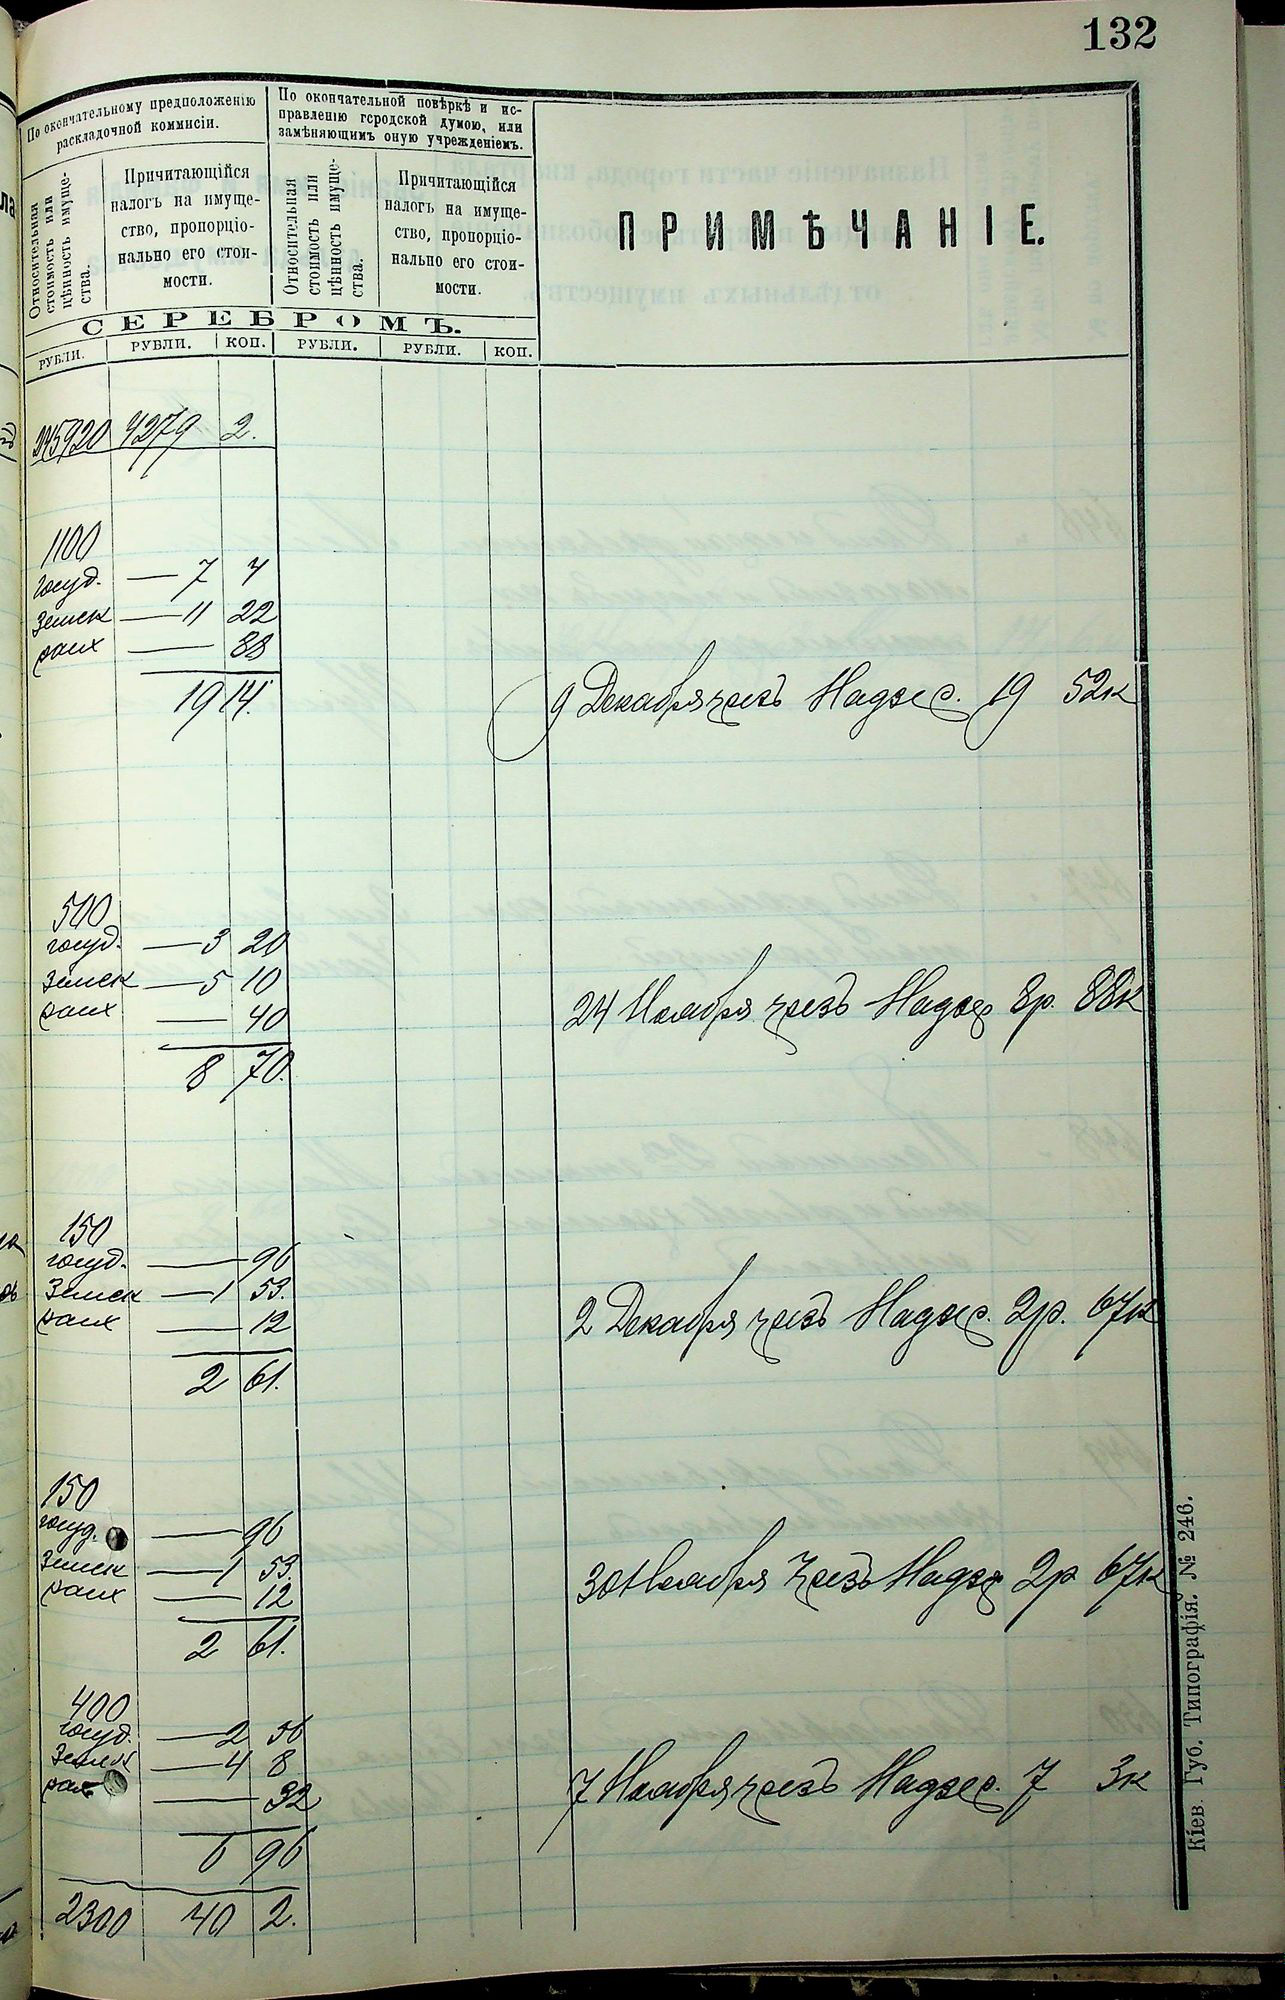 132
По окончательному предположенію
раскладочной коммисіи.
По окончательной повѣркѣ и ис-
правленію городской думою, или
замѣняющимъ оную учрежденіемъ.
Относительная
стоимость или
цѣнность имуще-
ства.
Причитающійся
налогъ на имуще-
ство, пропорціо-
нально его стои-
мости.
Относительная
стоимость или
цѣнность имуще-
ства.
Причитающійся
налогъ на имуще-
ство, пропорціо-
нально его стои-
мости.
ПРИМѢЧАНІЕ.
СЕРЕБРОМЪ.
РУБЛИ. РУБЛИ. КОП. РУБЛИ. РУБЛИ. КОП.
245920 4279 2.
1100
госуд. — 7 4
Земск — 11 22
— 88
19 14.
9 Декабря чрезъ Надзс. 19 52к
500
госуд. — 3 20
Земск — 5 10
— 40
8 70.
24 Ноября чрезъ Надзс 8р. 88к
150
госуд. — 96
Земск — 1 53.
— 12
2 61.
2 Декабря чрезъ Надзс. 2р. 67к
150
госуд. — 96
Земск — 1 53.
— 12
2 61.
30 Ноября чрезъ Надзс 2р 67к
400
госуд. — 2 56
Земск — 4 8
— 32
6 96
7 Ноября чрезъ Надзс. 7 3к
2300 40 2.
Кіев. Губ. Типографія. № 246.